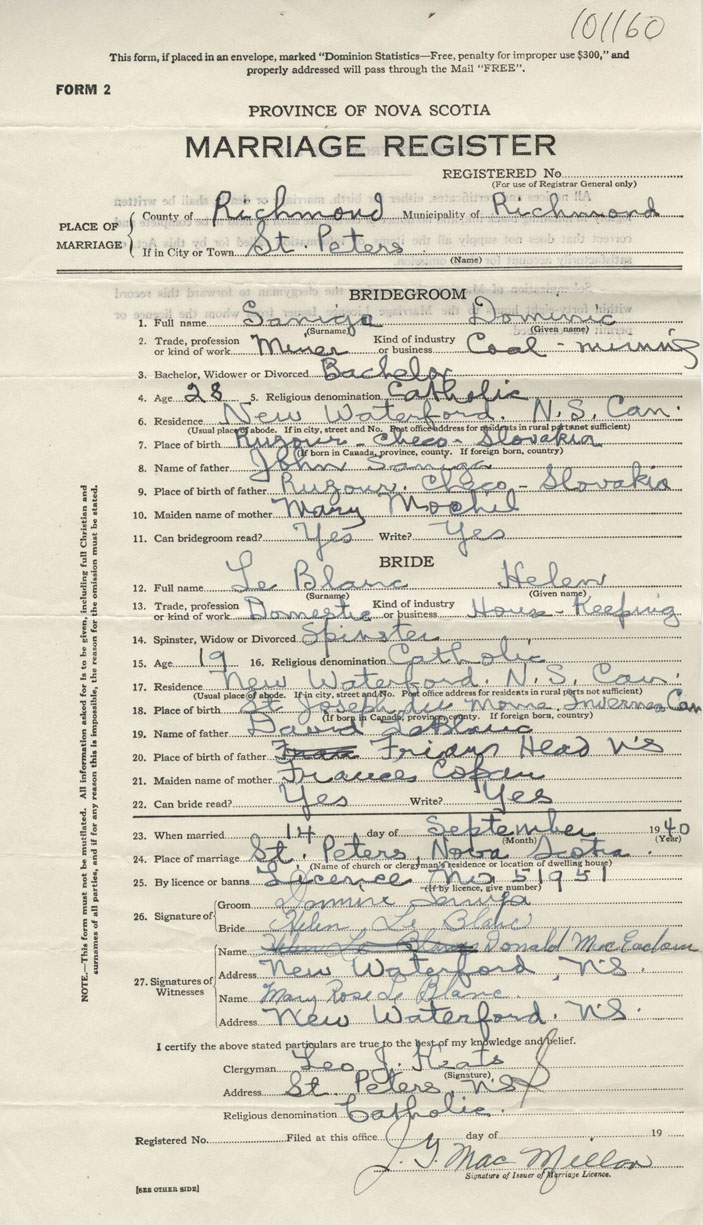 101160
This form, if placed in an envelope, marked "Dominion Statistics—Free, penalty for improper use $300," and
properly addressed will pass through the Mail "FREE".
FORM 2
PROVINCE OF NOVA SCOTIA
MARRIAGE REGISTER
REGISTERED No.
(For use of Registrar General only)
PLACE OF MARRIAGE
County of Richmond Municipality of Richmond
If in City or Town St. Peters
(Name)
BRIDEGROOM
1. Full name Saniga Dominic
(Surname) (Given name)
2. Trade, profession or kind of work Miner Kind of industry or business Coal-mining
3. Bachelor, Widower or Divorced Bachelor
4. Age 28 5. Religious denomination Catholic
6. Residence New Waterford. N.S. Can.
(Usual place of abode. If in city, street and No. Post office address for residents in rural parts not sufficient)
7. Place of birth Ruzour - Checo-Slovakia
(If born in Canada, province, county. If foreign born, country)
8. Name of father John Saniga
9. Place of birth of father Ruzour. Checo-Slovakia
10. Maiden name of mother Mary
11. Can bridegroom read? Yes Write? Yes
BRIDE
12. Full name Le Blanc Helen
(Surname) (Given name)
13. Trade, profession or kind of work Domestic Kind of industry or business House-Keeping
14. Spinster, Widow or Divorced Spinster
15. Age 19 16. Religious denomination Catholic
17. Residence New Waterford. N.S. Can.
(Usual place of abode. If in city, street and No. Post office address for residents in rural parts not sufficient)
18. Place of birth St Joseph du Moine Inverness Can
(If born in Canada, province, county. If foreign born, country)
19. Name of father David LeBlanc
20. Place of birth of father Friars Head NS
21. Maiden name of mother Frances
22. Can bride read? Yes Write? Yes
23. When married 14 day of September 1940
(Month) (Year)
24. Place of marriage St. Peters, Nova Scotia.
(Name of church or clergyman's residence or location of dwelling house)
25. By licence or banns Licence No 51951
(If by licence, give number)
26. Signature of
Groom Dominic
Bride Helen Le Blanc
27. Signatures of Witnesses
Name Donald MacEachern
Address New Waterford, NS.
Name Mary Rose Le Blanc.
Address New Waterford. N.S.
I certify the above stated particulars are true to the best of my knowledge and belief.
Clergyman Leo J. Keats
(Signature)
Address St Peters, NS
Religious denomination Catholic.
Registered No. Filed at this office day of 19
J. G. MacMillan
Signature of Issuer of Marriage Licence.
[SEE OTHER SIDE]
NOTE.—This form must not be mutilated. All information asked for is to be given, including full Christian and
surnames of all parties, and if for any reason this is impossible, the reason for the omission must be stated.